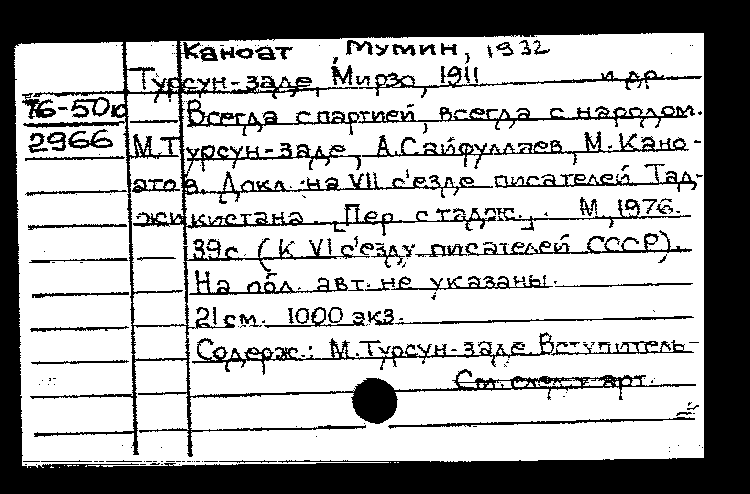 Каноат Мумин, 1932
Турсун-заде, Мирзо, 1911 и др.
76-50ю Всегда с партией, всегда с народом.
2966 М.Турсун-заде, А.Сайфуллаев, М.Кано-
атов. Докл. на VII с'езде писателей Тад-
жикистана. [Пер. с тадж.]. М., 1976.
39с. (К VI с'езду писателей СССР).
На обл. авт. не указаны.
21см. 1000 экз.
Содерж.: М.Турсун-заде Вступитель-
См. след.